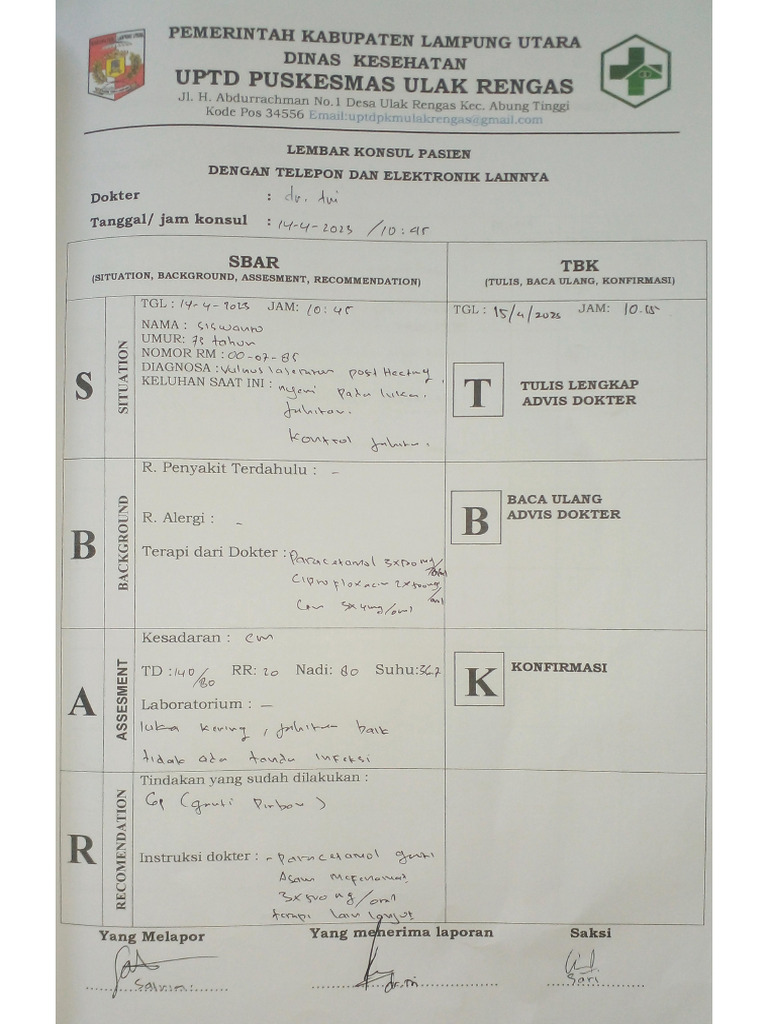 PEMERINTAH KABUPATEN LAMPUNG UTARA
DINAS KESEHATAN
UPTD PUSKESMAS ULAK RENGAS
Jl. H. Abdurrachman No.1 Desa Ulak Rengas Kec. Abung Tinggi
Kode Pos 34556 Email:uptdpkmulakrengas@gmail.com
LEMBAR KONSUL PASIEN
DENGAN TELEPON DAN ELEKTRONIK LAINNYA
Dokter : dr. tri
Tanggal/ jam konsul : 14-4-2023 /10:45
SBAR
(SITUATION, BACKGROUND, ASSESMENT, RECOMMENDATION)
TBK
(TULIS, BACA ULANG, KONFIRMASI)
S
SITUATION
TGL : 14-4-2023 JAM: 10:45
NAMA : Siswanto
UMUR: 73 tahun
NOMOR RM : 00-07-85
DIAGNOSA : Vulnus laceratum post Hecting
KELUHAN SAAT INI : nyeri pada luka
jahitan.
Kontrol jahitan.
TGL : 15/4/2023 JAM: 10.15
T
TULIS LENGKAP
ADVIS DOKTER
B
BACKGROUND
R. Penyakit Terdahulu : -
R. Alergi : -
Terapi dari Dokter : Paracetamol 3x500 mg/oral
Ciprofloxacin 2x500mg/oral
3x4mg/oral
B
BACA ULANG
ADVIS DOKTER
A
ASSESMENT
Kesadaran : cm
TD : 140/80 RR: 20 Nadi: 80 Suhu:36.7
Laboratorium : -
luka kering, jahitan baik
tidak ada tanda infeksi
K
KONFIRMASI
R
RECOMENDATION
Tindakan yang sudah dilakukan :
GP (ganti Perban)
Instruksi dokter : - Paracetamol ganti
Asam Mefenamat
3x500 mg/oral
terapi lain lanjut
Yang Melapor
Yang menerima laporan
Saksi
dr. Tri
Sari